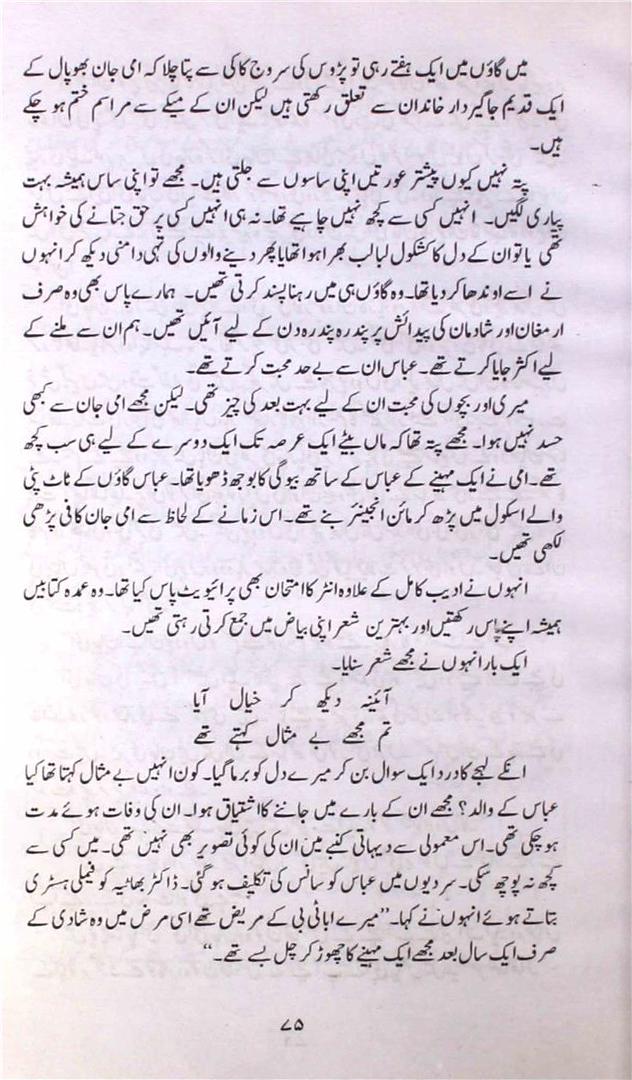 میں گاؤں میں ایک ہفتے رہی تو پڑوس کی سروج کاکی سے پتا چلا کہ امی جان بھوپال کے
ایک قدیم جاگیردار خاندان سے تعلق رکھتی ہیں لیکن ان کے میکے سے مراسم ختم ہو چکے
ہیں۔
پتہ نہیں کیوں پیشتر عورتیں اپنی ساسوں سے جلتی ہیں۔ مجھے تو اپنی ساس ہمیشہ بہت
پیاری لگیں۔ انہیں کسی سے کچھ نہیں چاہیے تھا۔ نہ ہی انہیں کسی پر حق جتانے کی خواہش
تھی یا تو ان کے دل کا کشکول لبالب بھرا ہوا تھا یا پھر دینے والوں کی تہی دامنی دیکھ کر انہوں
نے اسے اوندھا کر دیا تھا۔ وہ گاؤں ہی میں رہنا پسند کرتی تھیں۔ ہمارے پاس بھی وہ صرف
ارمغان اور شادمان کی پیدائش پر پندرہ پندرہ دن کے لیے آئیں تھیں۔ ہم ان سے ملنے کے
لیے اکثر جایا کرتے تھے۔ عباس ان سے بے حد محبت کرتے تھے۔
میری اور بچوں کی محبت ان کے لیے بہت بعد کی چیز تھی۔ لیکن مجھے امی جان سے کبھی
حسد نہیں ہوا۔ مجھے پتہ تھا کہ ماں بیٹے ایک عرصہ تک ایک دوسرے کے لیے ہی سب کچھ
تھے۔ امی نے ایک مہینے کے عباس کے ساتھ بیوگی کا بوجھ ڈھویا تھا۔ عباس گاؤں کے ٹاٹ پٹی
والے اسکول میں پڑھ کر مائن انجینئر بنے تھے۔ اس زمانے کے لحاظ سے امی جان کافی پڑھی
لکھی تھیں۔
انہوں نے ادیب کامل کے علاوہ انٹر کا امتحان بھی پرائیویٹ پاس کیا تھا۔ وہ عمدہ کتابیں
ہمیشہ اپنے پاس رکھتیں اور بہترین شعر اپنی بیاض میں جمع کرتی رہتی تھیں۔
ایک بار انہوں نے مجھے شعر سنایا۔
آئینہ دیکھ کر خیال آیا
تم مجھے بے مثال کہتے تھے
انکے لہجے کا درد ایک سوال بن کر میرے دل کو برما گیا۔ کون انہیں بے مثال کہتا تھا کیا
عباس کے والد؟ مجھے ان کے بارے میں جاننے کا اشتیاق ہوا۔ ان کی وفات ہوئے مدت
ہو چکی تھی۔ اس معمولی سے دیہاتی کنبے میں ان کی کوئی تصویر بھی نہیں تھی۔ میں کسی سے
کچھ نہ پوچھ سکی۔ سردیوں میں عباس کو سانس کی تکلیف ہو گئی۔ ڈاکٹر بھاٹیہ کو فیملی ہسٹری
بتاتے ہوئے انہوں نے کہا۔ ”میرے ابا ٹی بی کے مریض تھے اسی مرض میں وہ شادی کے
صرف ایک سال بعد مجھے ایک مہینے کا چھوڑ کر چل بسے تھے۔“
۷۵